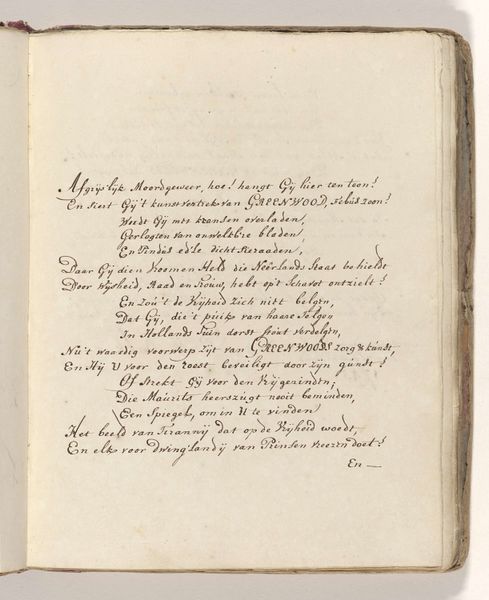 Afgrijslijk Moordgeweer, hoe! hangt Gij hier ten toon!
En siert Gij't kunstvertrek van GREENWOOD, Febus zoon!
Wordt Gij met kransen overladen,
Gevlogten van onwelkbre bladen
En Pindus ed'le dicht sieraaden,
Daar Gij dien vroomen Held die Neêrlands Staat behieldt
Door Wijsheid, Raad en Trouw, hebt op't Schavot ontzielt!
En zou't de Vrijheid zich niet belgen,
Dat Gij, die't puik van haare Telgen
In Hollands Tuin dorst stout verdelgen,
Nu't waardig voorwerp zijt van GREENWOODS zorg & kunst,
En Hij U voor den roest beveiligt door zijn gunst!
Of strekt Gij voor den Vrijgezinden,
Die Maurits heerszugt nooit beminden,
Een Spiegel, om in U te vinden
Het beeld van Tirannij dat op de Vrijheid woedt,
En elk voor dwinglandij van Prinsen vreezen doet!
En —